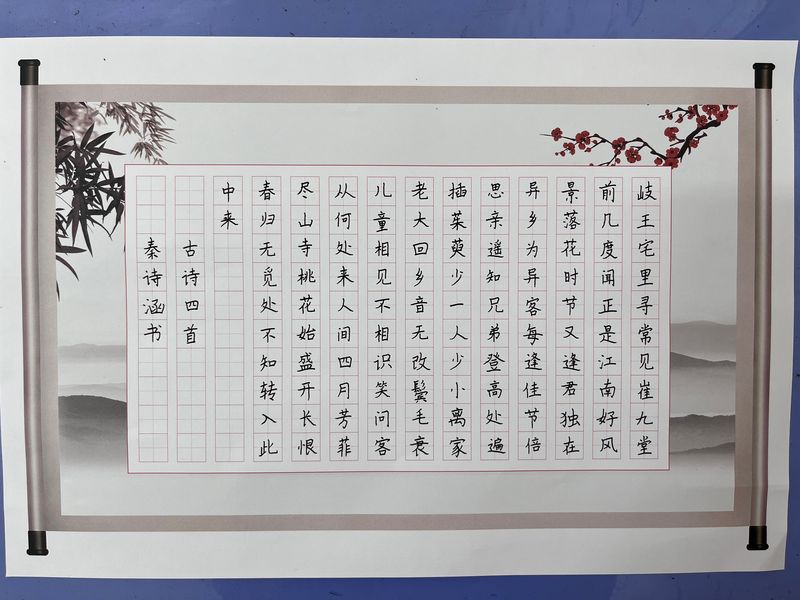 岐王宅里寻常见崔九堂
前几度闻正是江南好风
景落花时节又逢君独在
异乡为异客每逢佳节倍
思亲遥知兄弟登高处遍
插茱萸少一人少小离家
老大回乡音无改鬓毛衰
儿童相见不相识笑问客
从何处来人间四月芳菲
尽山寺桃花始盛开长恨
春归无觅处不知转入此
中来
古诗四首
秦诗涵书